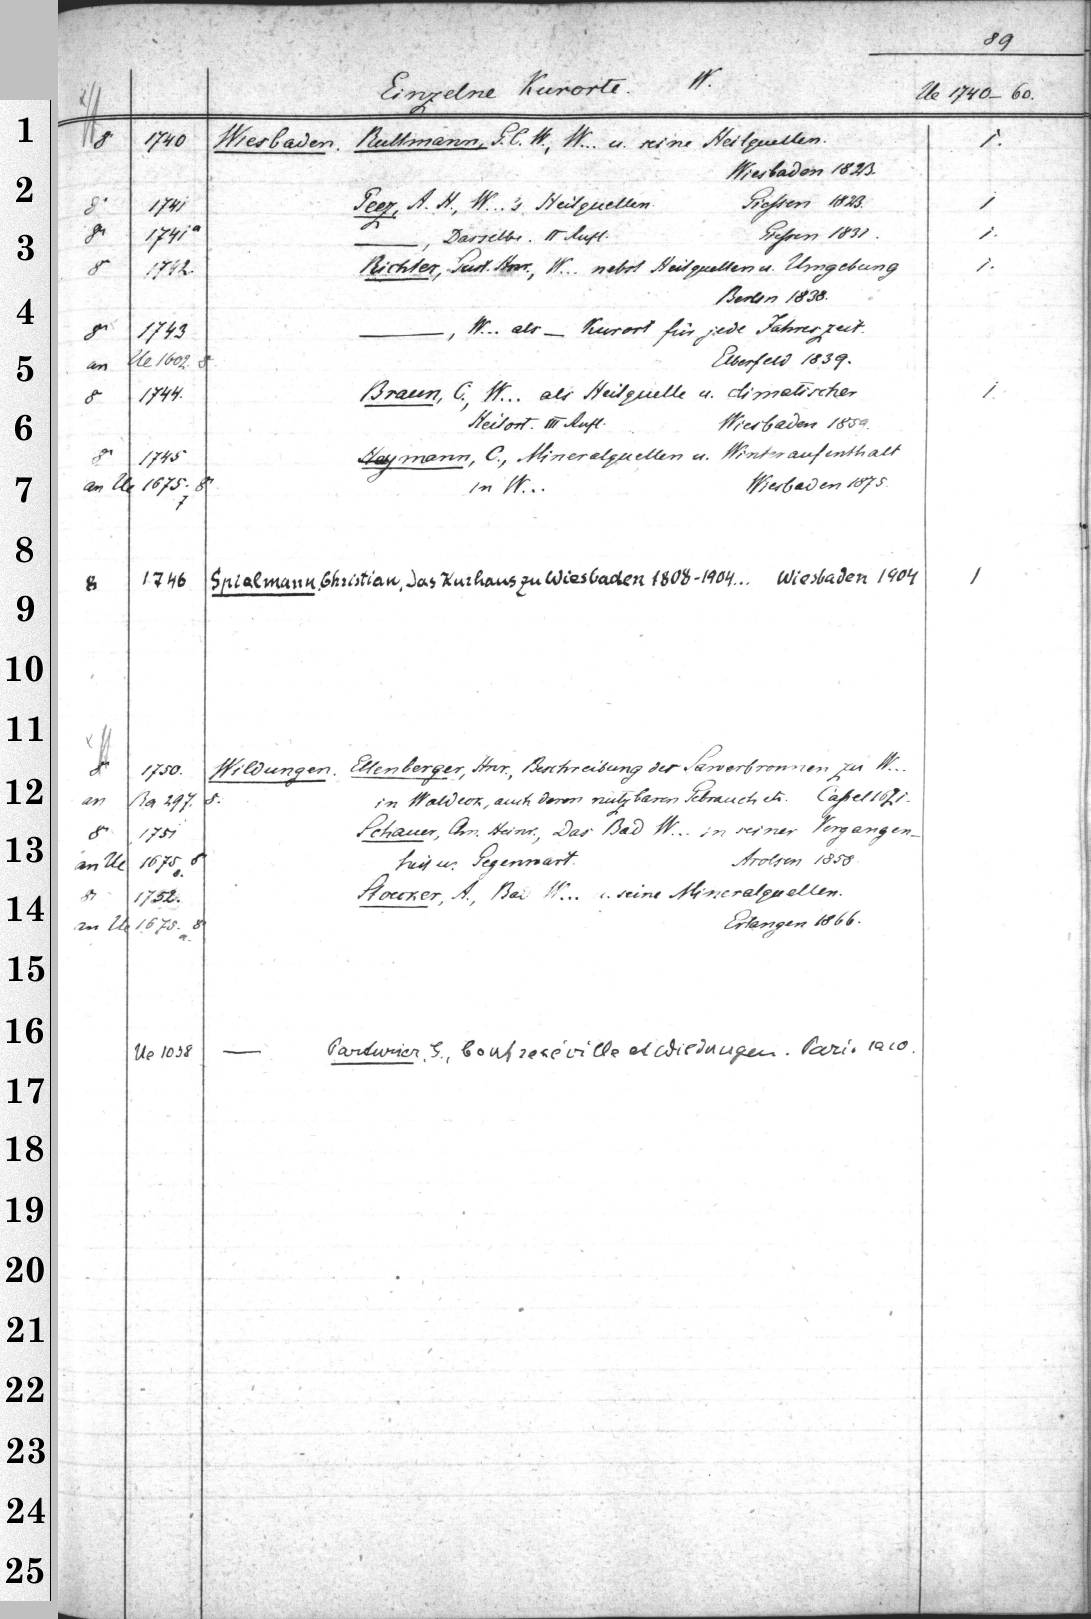 89
Einzelne Kurorte. W. Ue 1740-60.
8° 1740 Wiesbaden. Rullmann, G. C. W., W... u. seine Heilquellen. 1.
Wiesbaden 1823.
8° 1741 Peez, A. H., W...'s Heilquellen. Giessen 1823. 1
8° 1741a ——, Dasselbe. II Aufl. Giessen 1831. 1.
8° 1742. Richter, Gust. Hnr., W... nebst Heilquellen u. Umgebung 1.
Berlin 1838.
8° 1743 ——, W... als — Kurort für jede Jahreszeit.
an Ue 1602. 8° Elberfeld 1839.
8° 1744. Braun, C., W... als Heilquelle u. climatischer 1
Heilort. III Aufl. Wiesbaden 1859.
8° 1745 Haymann, C., Mineralquellen u. Winteraufenthalt
an Ue 1675. 8° in W... Wiesbaden 1875.
7
8 1746 Spielmann, Christian, Das Kurhaus zu Wiesbaden 1808-1904... Wiesbaden 1904 1
8° 1750. Wildungen. Ellenberger, Hnr., Beschreibung der Sawerbronnen zu W...
an Ra 297. 8. in Waldeck, auch deren nutzbaren Gebrauch etc. Cassel 1671.
8° 1751 Schauer, Chr. Heinr., Das Bad W... in seiner Vergangen-
an Ue 1675. 8° heit u. Gegenwart. Arolsen 1858.
8° 1752. Stoecker, A., Bad W... u. seine Mineralquellen.
an Ue 1675. 8° Erlangen 1866.
a.
Ue 1038 — Parturier, G., Contrexéville et Wildungen. Paris 1910.
1
2
3
4
5
6
7
8
9
10
11
12
13
14
15
16
17
18
19
20
21
22
23
24
25